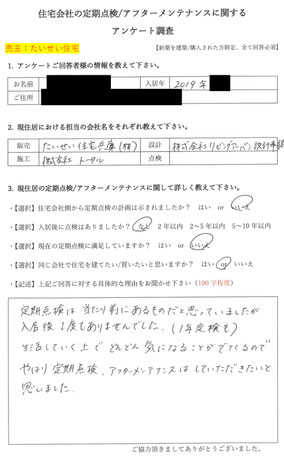 住宅会社の定期点検/アフターメンテナンスに関する
アンケート調査
売主：たいせい住宅
【新築を建築/購入された方限定、全て回答必須】
1. アンケートご回答者様の情報を教えて下さい。
お名前 入居年 2019年
ご住所
2. 現住居における担当の会社名をそれぞれ教えて下さい。
販売 たいせい住宅兵庫(株) 設計 株式会社リビングアーバン設計事務所
施工 株式会社トータル 点検
3. 現住居の定期点検/アフターメンテナンスに関して詳しく教えて下さい。
・【選択】住宅会社側から定期点検の計画は示されましたか？ はい or いいえ
・【選択】入居後に点検はありましたか？ なし 2年以内 2～5年以内 5～10年以内
・【選択】現在の定期点検に満足していますか？ はい or いいえ
・【選択】同じ会社で住宅を建てたい/買いたいと思いますか？ はい or いいえ
・【記述】上記ご回答に対する具体的な理由をお聞かせ下さい（100字程度）
定期点検は当たり前にあるものだと思っていましたが
入居後1度もありませんでした。（1年定検も）
生活していく上でどんどん気になることがでてくるので
やはり定期点検、アフターメンテナンスはしていただきたいと
思いました。
ご協力頂きましてありがとうございました。